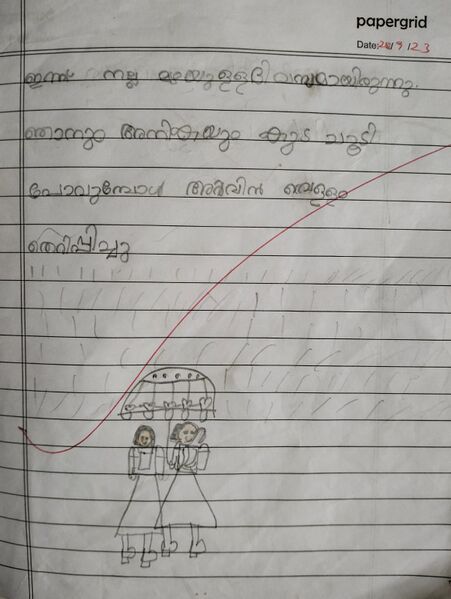 papergrid
Date: 26/9/23
ഇന്ന് നല്ല മഴയുള്ള ദിവസമായിരുന്നു.
ഞാനും അനികയും കുട ചൂടി
പോവുമ്പോൾ അശ്വിൻ വെള്ളം
തെറിപ്പിച്ചു